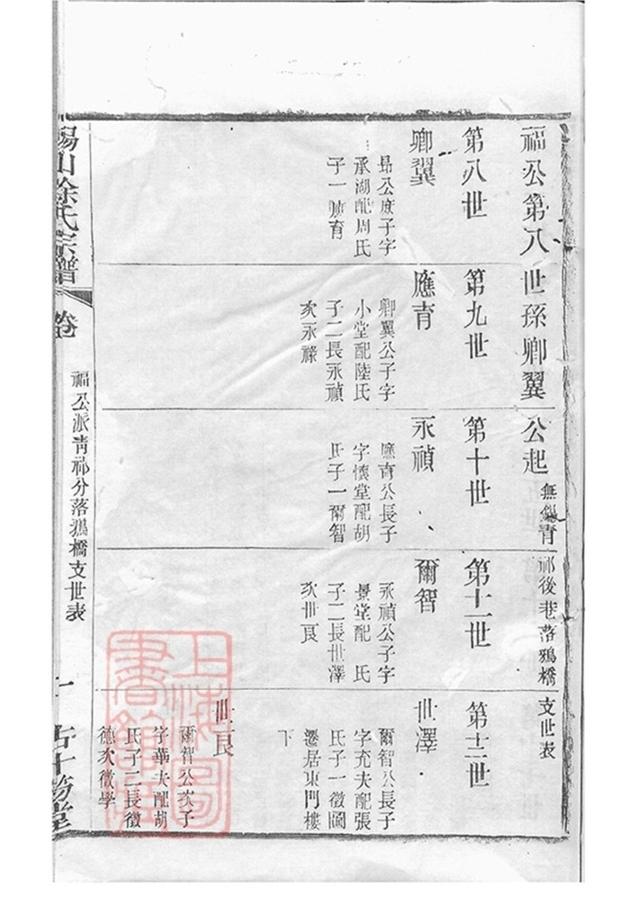 福公第八世孫卿翼公起無錫青祁後巷落鴉橋支世表
第八世
卿翼
昂公庶子字
承湖配周氏
子一應育
第九世
應育
卿翼公子字
小堂配陸氏
子二長永禎
次永祿
第十世
永禎
應育公長子
字懷堂配胡
氏子一爾智
第十一世
爾智
永禎公子字
景堂配 氏
子二長世澤
次世良
第十二世
世澤
爾智公長子
字充夫配張
氏子一徵
遷居東門樓
下
世良
爾智公次子
字華夫配胡
氏子二長徵
德次徵學
錫山徐氏宗譜
卷
福公派青祁分落鴉橋支世表
一
堂
上海圖書館藏